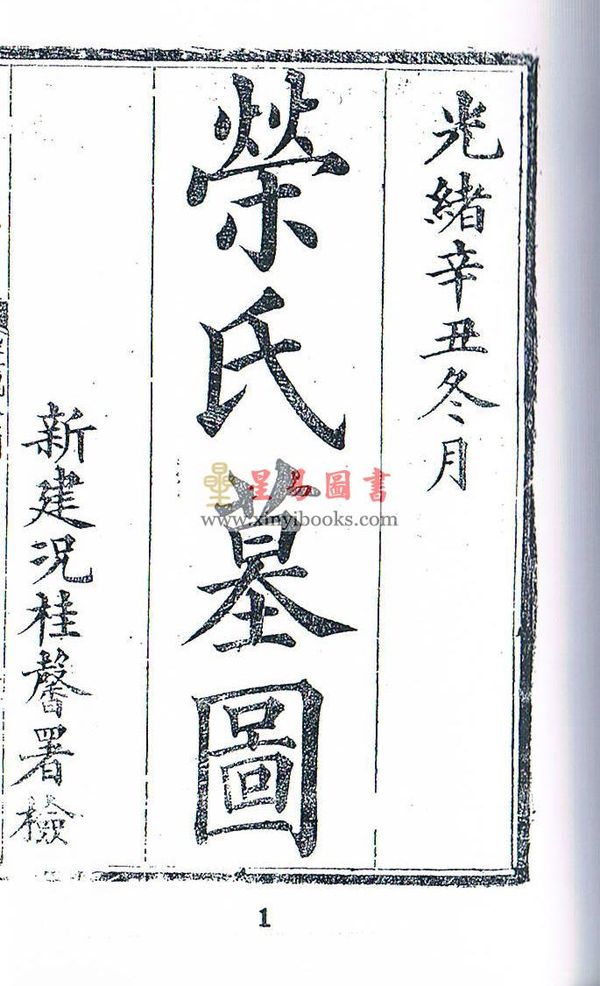 光緒辛丑冬月
榮氏墓圖
新建況桂馨署檢
星易圖書
www.xinyibooks.com
1